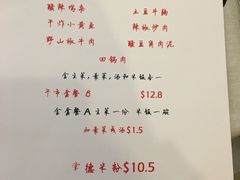 酸辣鸡杂 土豆牛腩
干炸小黄鱼 辣椒炒肉
野山椒牛肉 酸豆角肉泥
回锅肉
含主菜,素菜,汤和米饭各一
午市套餐 B $12.8
含套餐 A 主菜一份 米饭一碗
加素菜或汤 $1.5
常德米粉 $10.5